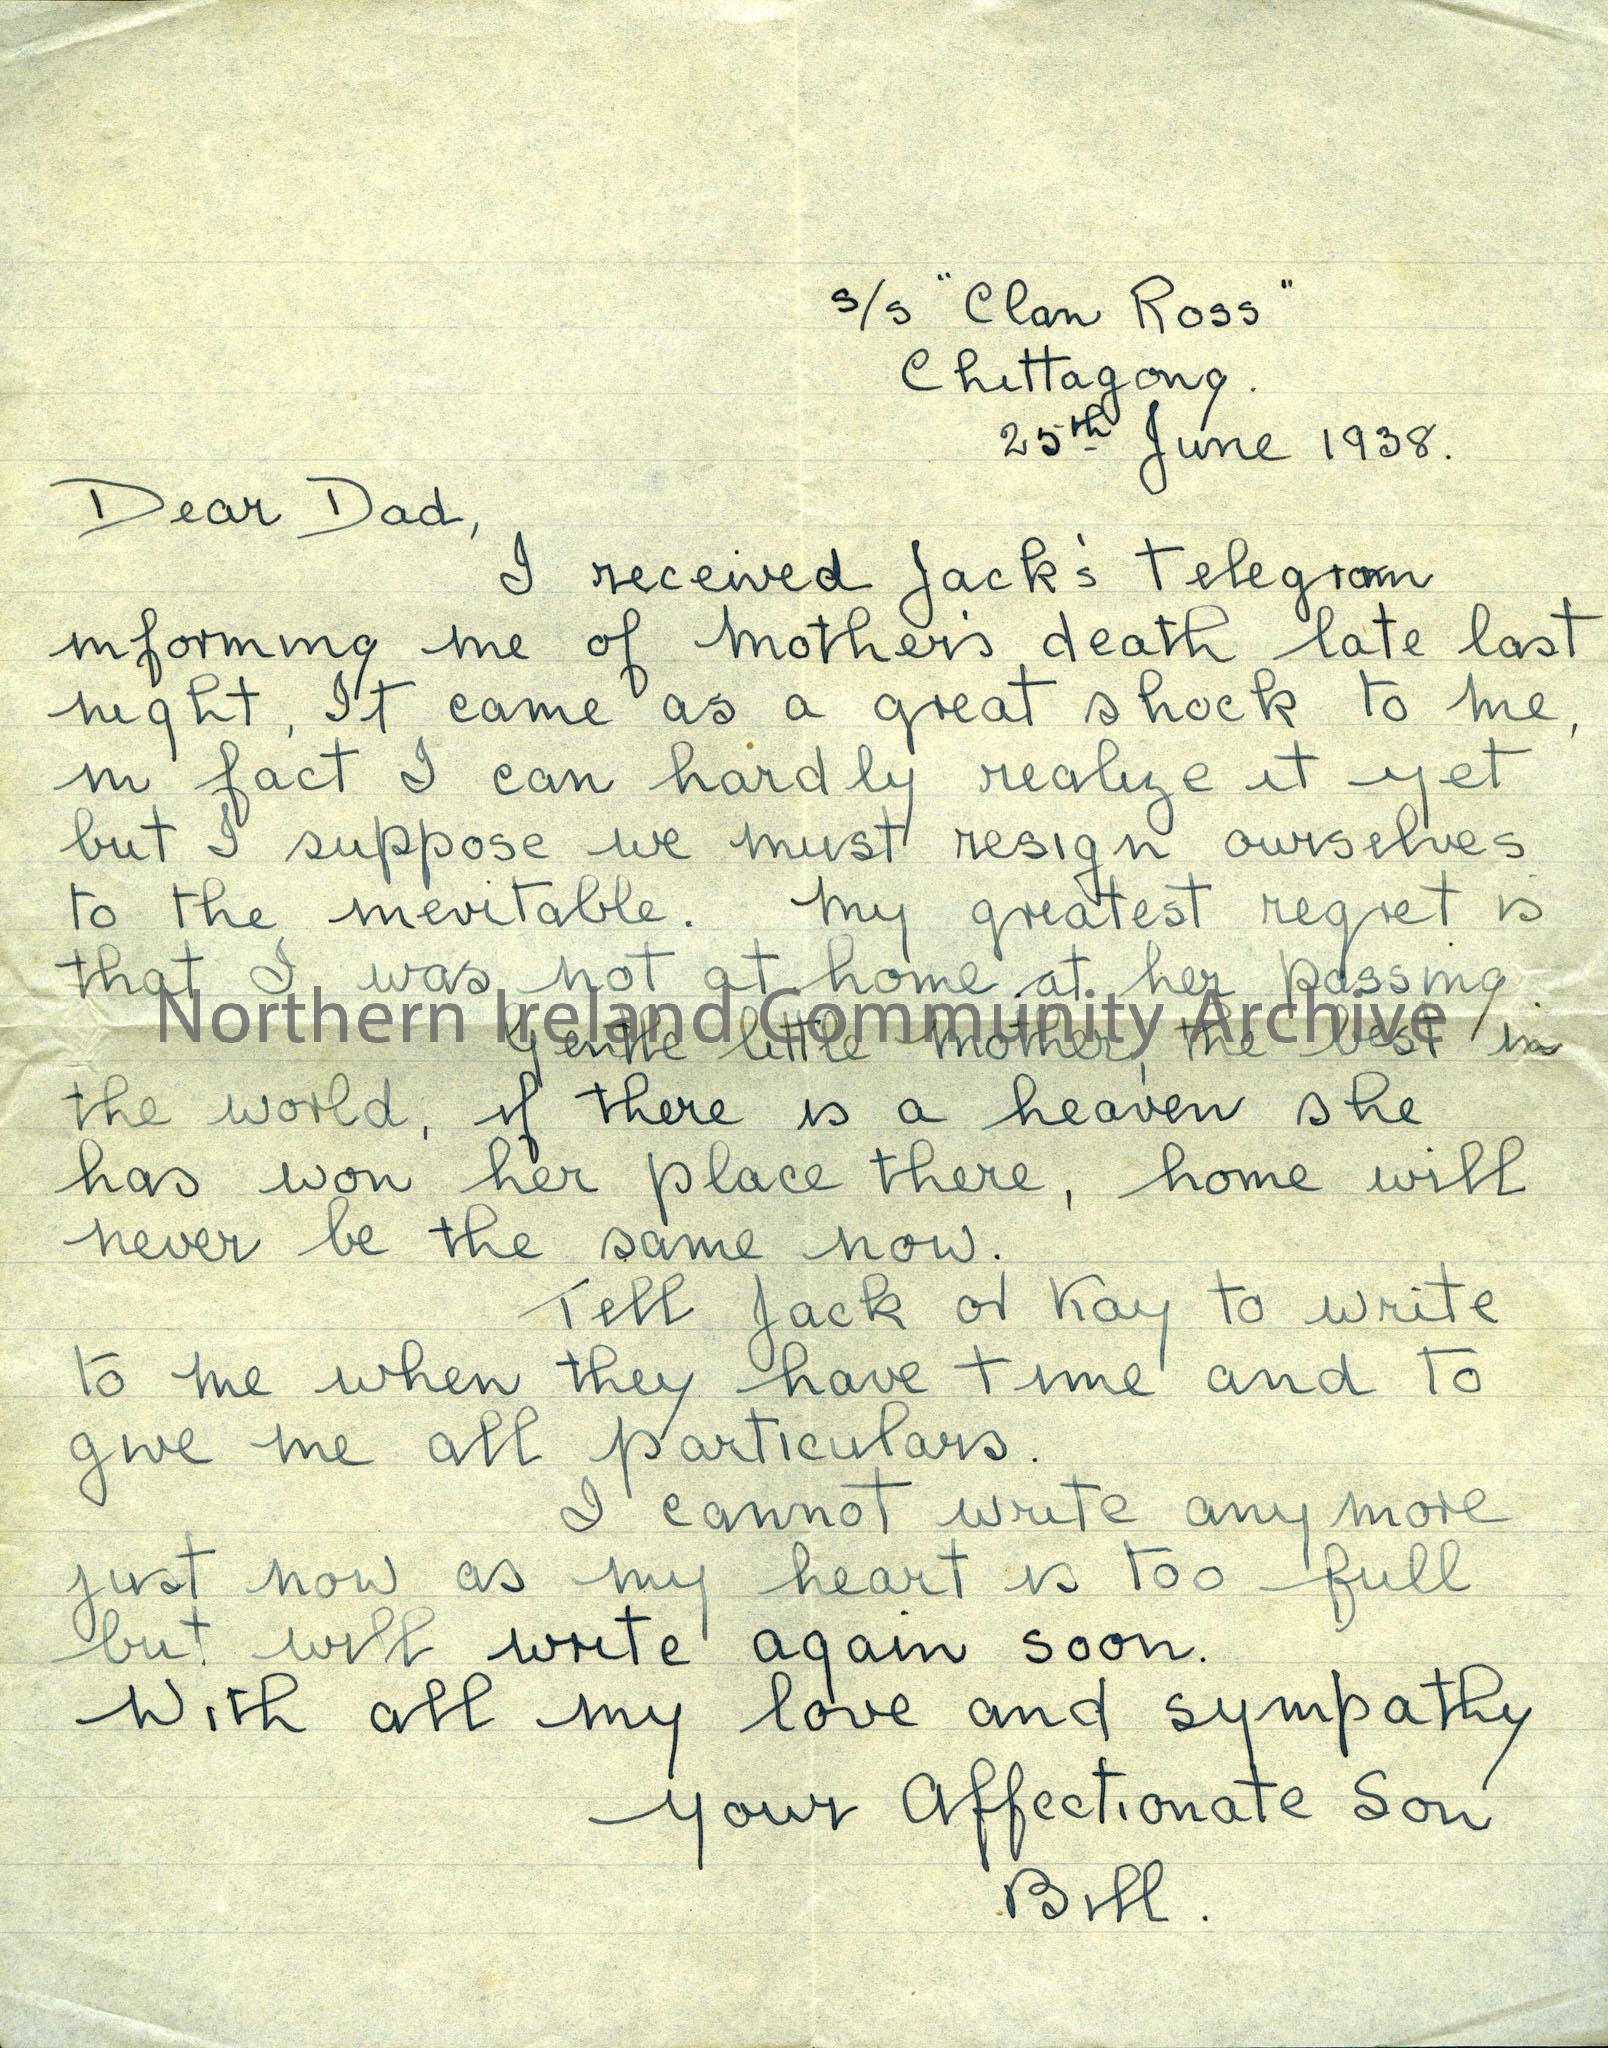 s/s "Clan Ross"
Chittagong.
25th June 1938.
Dear Dad,
I received Jack's Telegram
informing me of Mother's death late last
night, It came as a great shock to me,
in fact I can hardly realize it yet
but I suppose we must resign ourselves
to the inevitable. My greatest regret is
that I was not at home at her passing
Northern Ireland Community Archive
Gentle little Mother, the best in
the world, if there is a heaven she
has won her place there, home will
never be the same now.
Tell Jack or Kay to write
to me when they have time and to
give me all particulars.
I cannot write any more
just now as my heart is too full
but will write again soon.
With all my love and sympathy
your Affectionate Son
Bill.